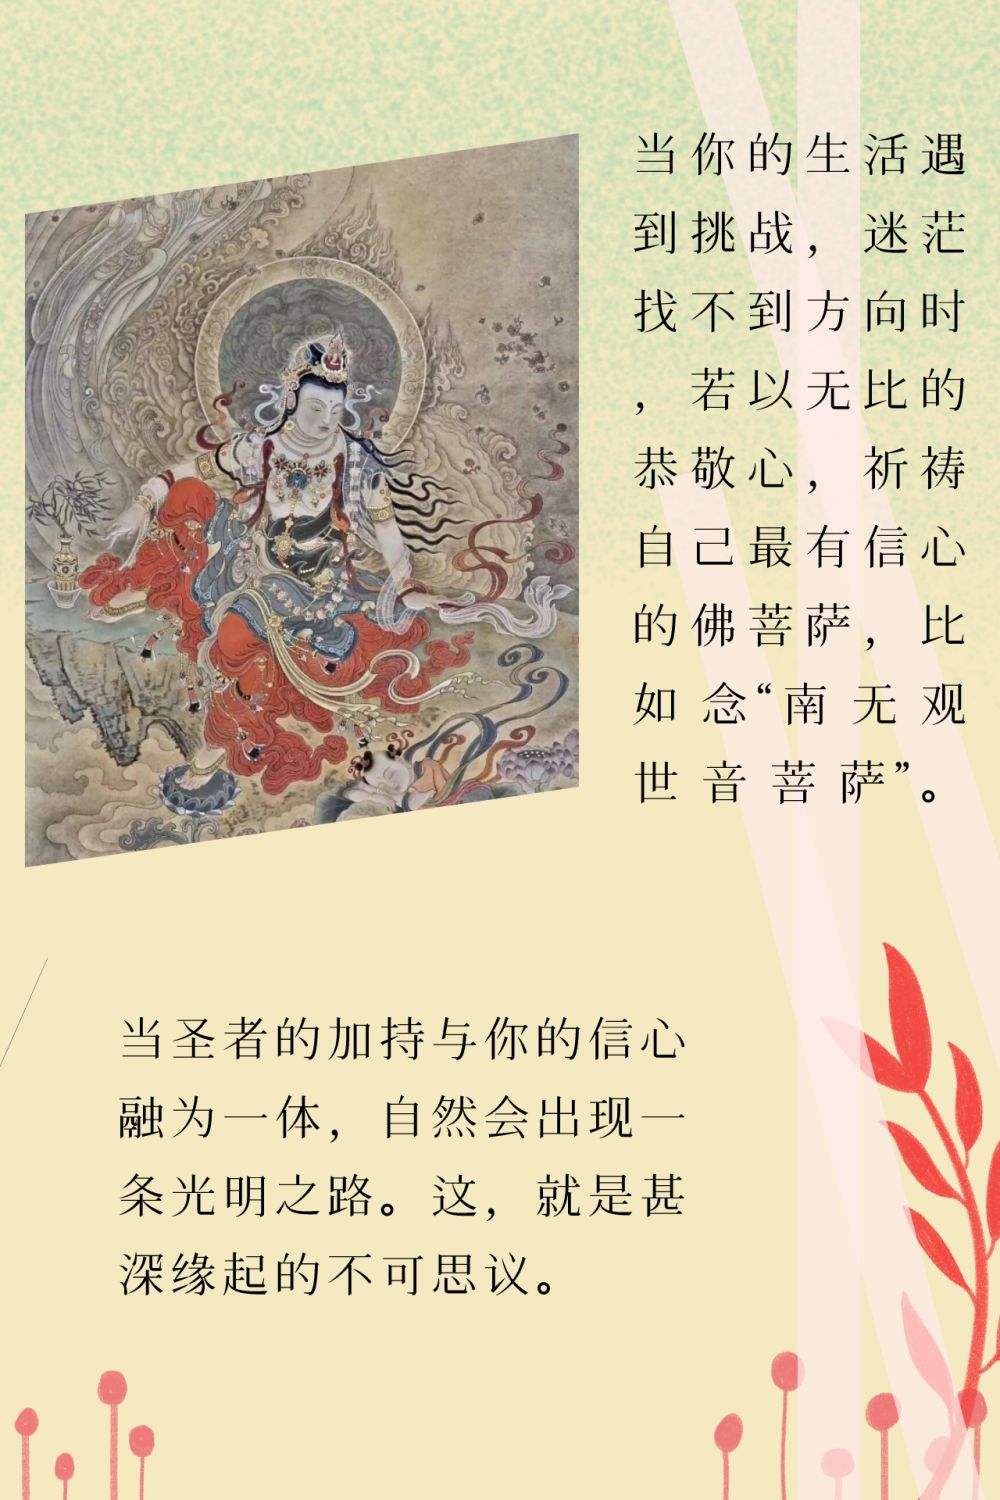 当你的生活遇
到挑战，迷茫
找不到方向时
，若以无比的
恭敬心，祈祷
自己最有信心
的佛菩萨，比
如念“南无观
世音菩萨”。
当圣者的加持与你的信心
融为一体，自然会出现一
条光明之路。这，就是甚
深缘起的不可思议。